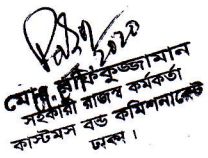 মোঃ রফিকুজ্জামান
সহকারী রাজস্ব কর্মকর্তা
কাস্টমস বন্ড কমিশনারেট
ঢাকা।